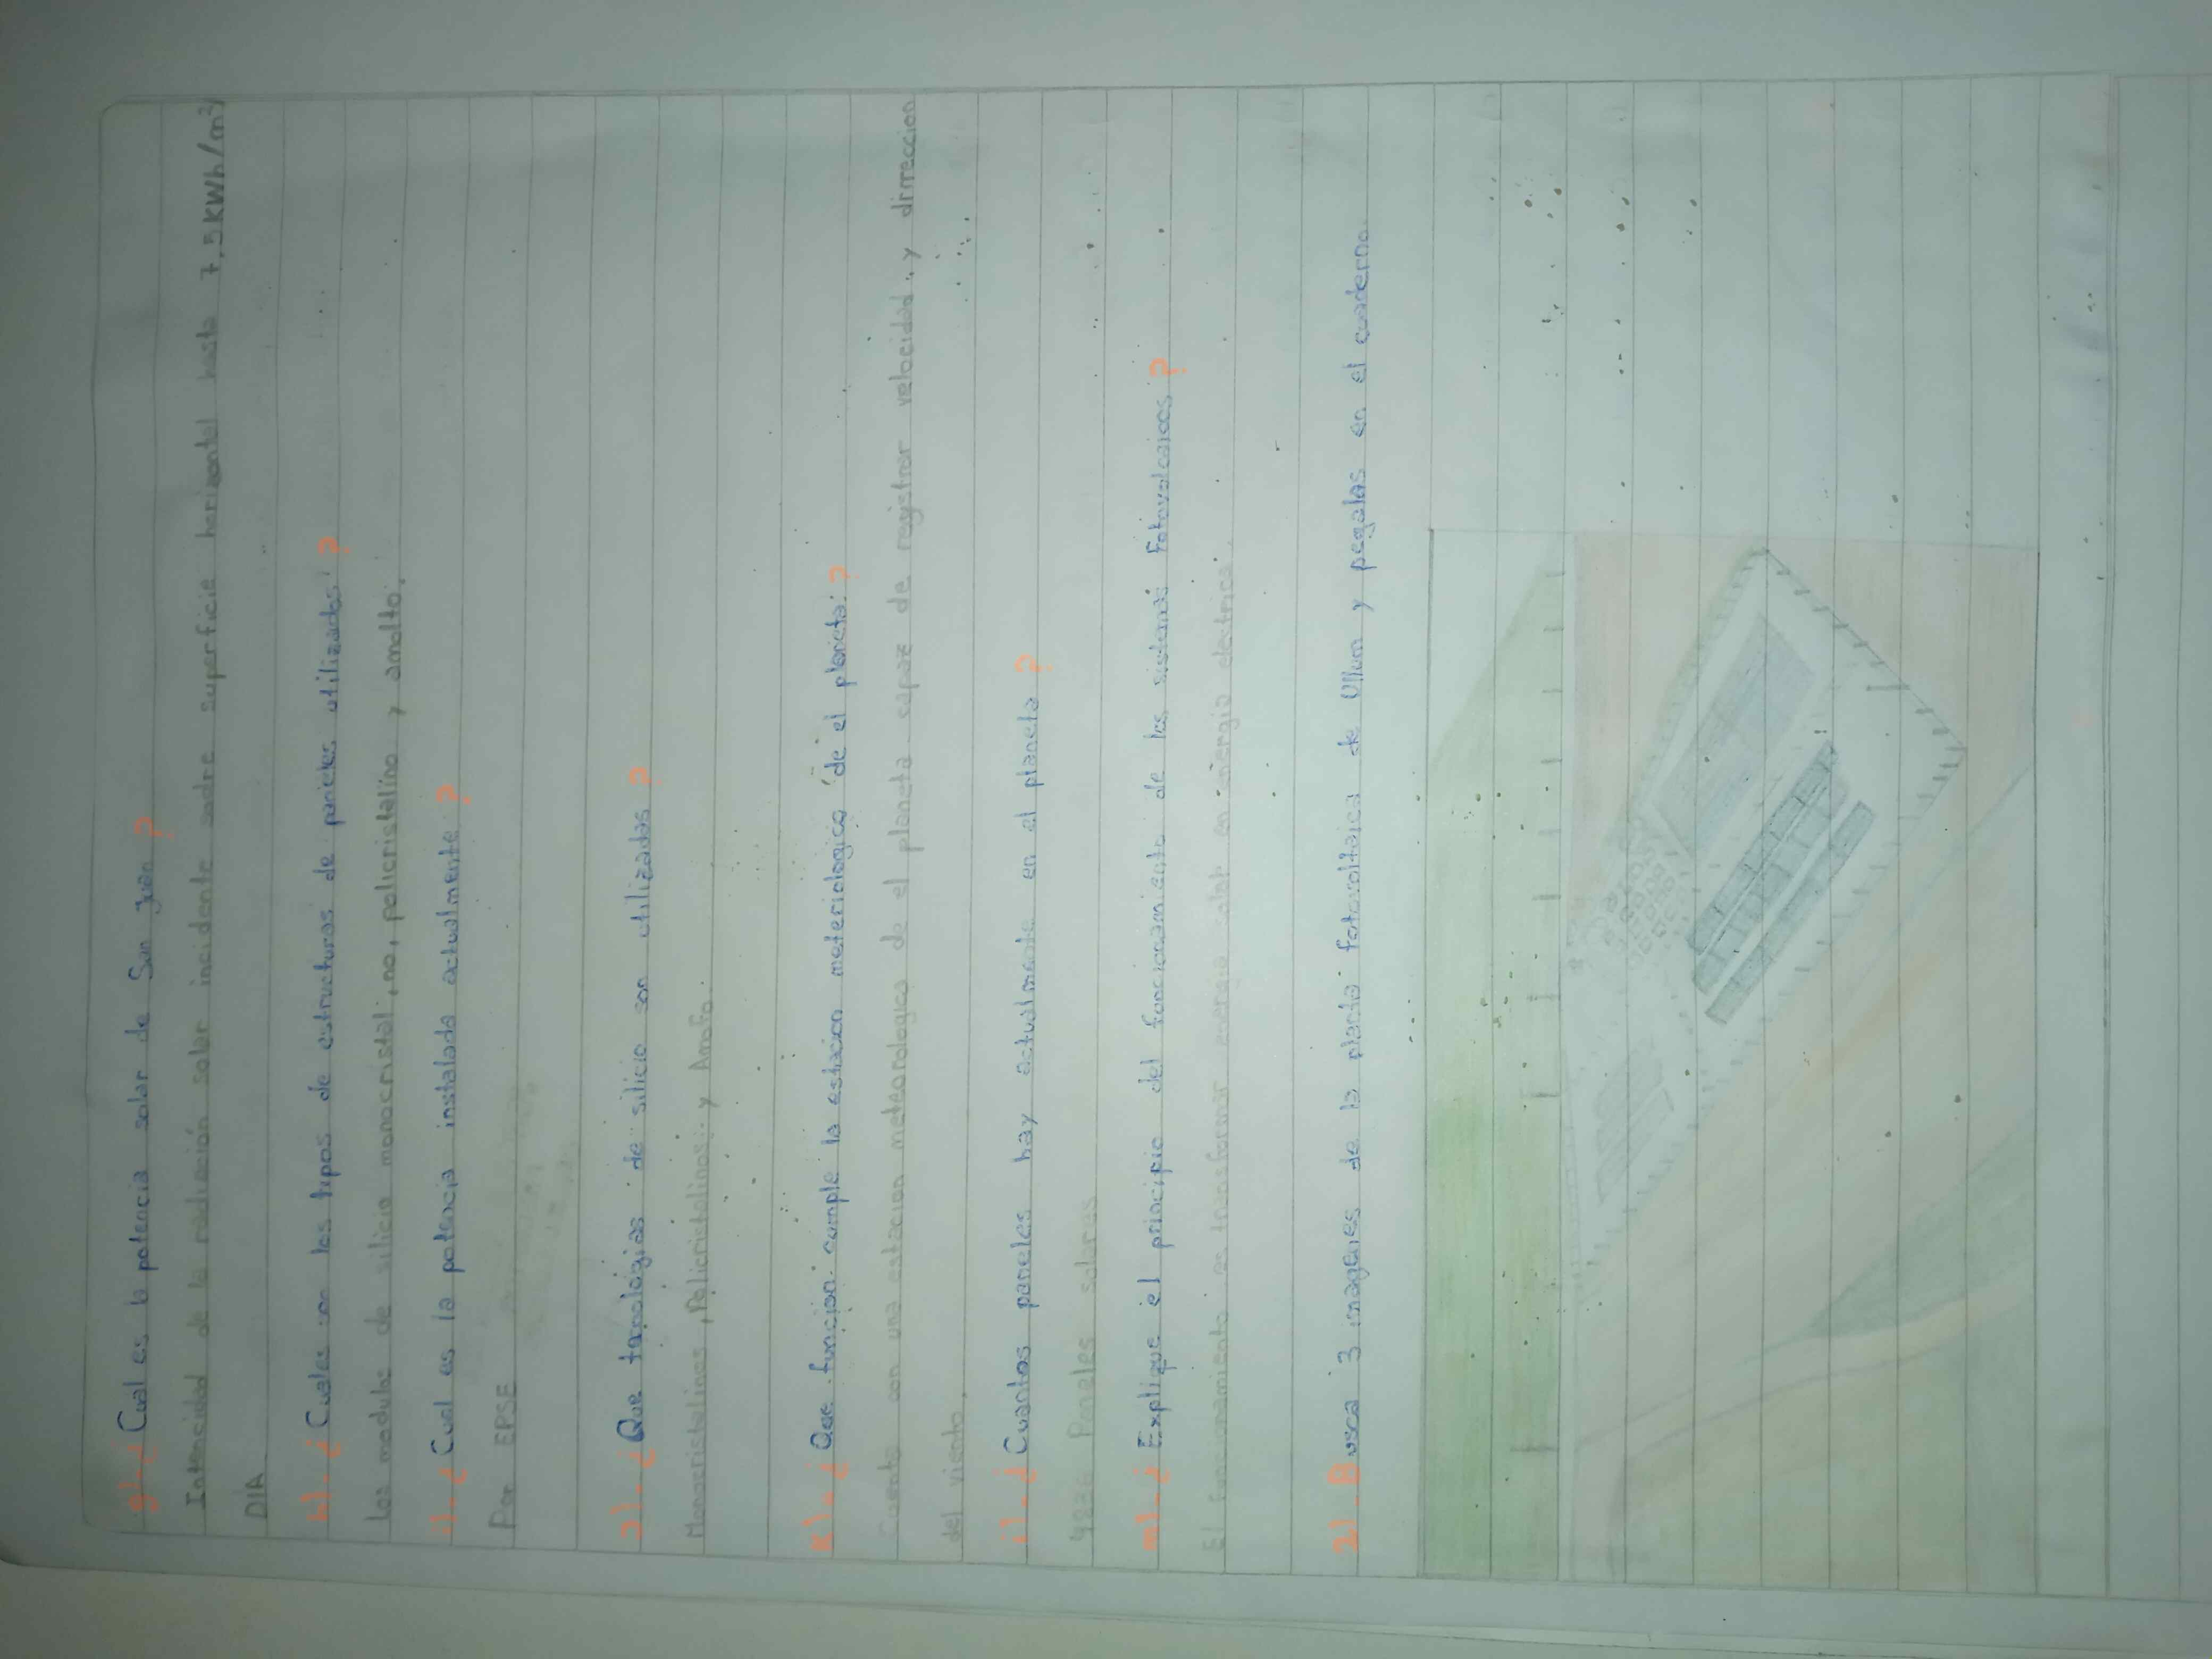 g)-¿ Cual es la potencia solar de San juan ?
Intencidad de la radiación solar incidente sobre superficie horizontal hasta 7,5KWh/m²
DIA
h)-¿ Cuales son los tipos de estructuras de paneles utilizados ?
Los modulos de silicio monocristal, no, policristalino y amolto.
i)-¿ Cual es la potencia instalada actualmente ?
Por EPSE
J)-¿ Que tecnologias de silicio son utilizadas ?
Monocristalinos, Policristalinos y Amofo.
K)-¿ Que funcion cumple la estacion meteriologica de el planeta ?
Cuenta con una estacion meteorologica de el planeta capaz de registrar velocidad y dirreccion
del viento.
-¿ Cuantos paneles hay actualmente en el planeta ?
Paneles solares
m)-¿ Explique el principio del funcionamiento de los sistemas fotovolcaicos ?
El funcionamiento es transformar energia solar en energia electrica.
2)-Busca 3 imagenes de la planta fotovoltaica de Ullum y pegalas en el cuaderno.